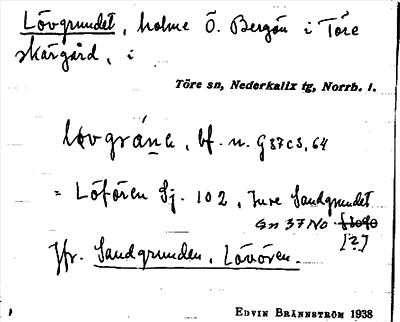 Lövgrundet, holme Ö. Bergön i Töre
skärgård, i
Töre sn, Nederkalix tg, Norrb. l.
lövgrána, bf. n. G 37 c3, 64
= Löfören Sj. 102, Inre Sandgrundet
Gn 37 NO
[?]
Jfr. Sandgrunden, Lövören.
EDVIN BRÄNNSTRÖM 1938